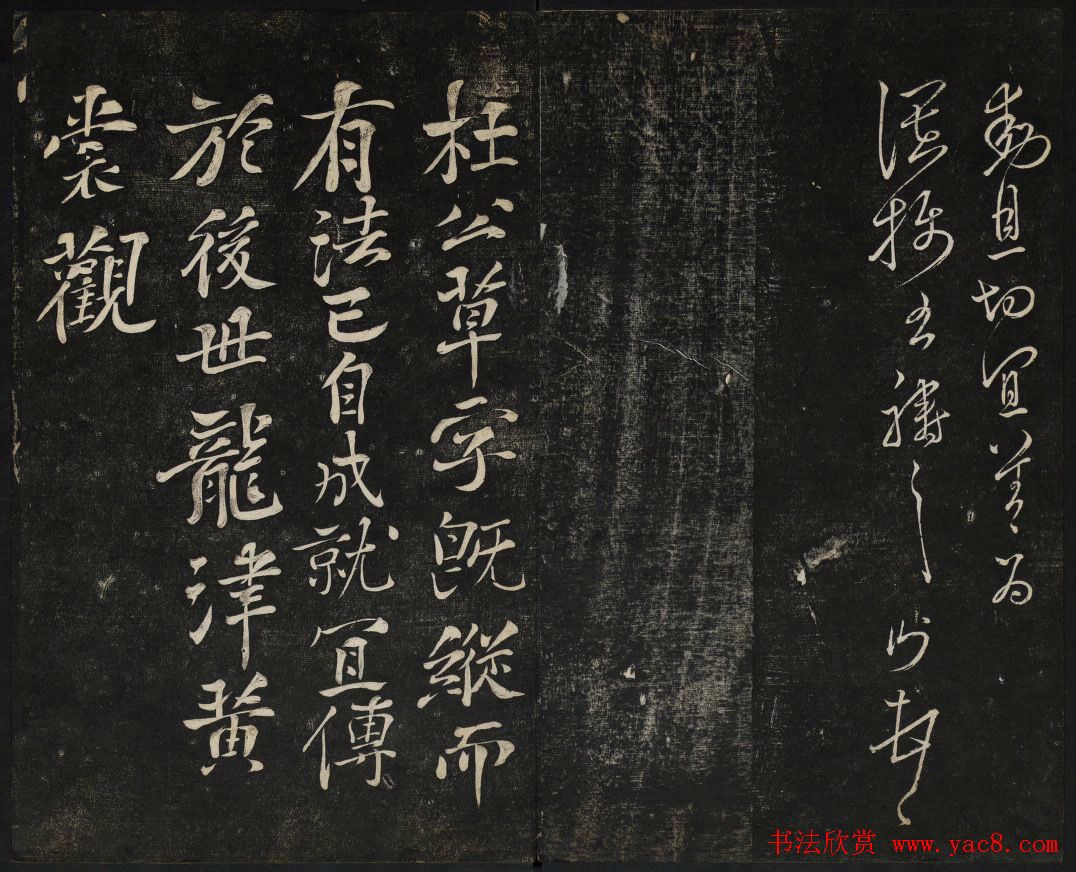 切冝為
禱之
杜公草字既縱而
有法已自成就冝傳
於後世龍津黄
裳觀
书法欣赏 www.yac8.com